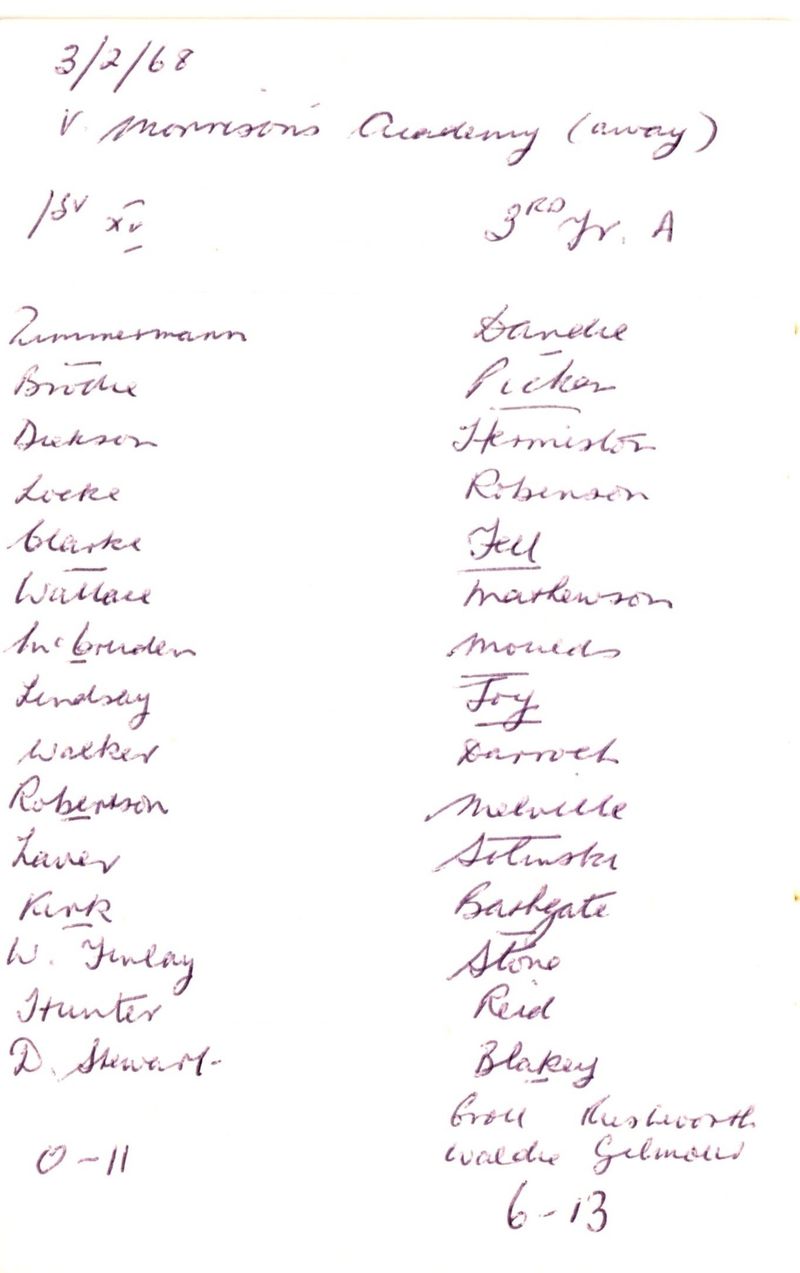 3/2/68
V. Morrison's Academy (away)
1st XV
Zimmermann
Brodie
Dickson
Locke
Clarke
Wallace
McCruden
Lindsay
Walker
Robertson
Laver
Kirk
W. Finlay
Hunter
D. Stewart
0-11
3RD Yr. A
Dandie
Picken
Hermiston
Robinson
Fell
Mathewson
Moulds
Foy
Darroch
Melville
Bathgate
Stone
Reid
Blakey
Croll Rushworth
Waldie Gilmour
6-13